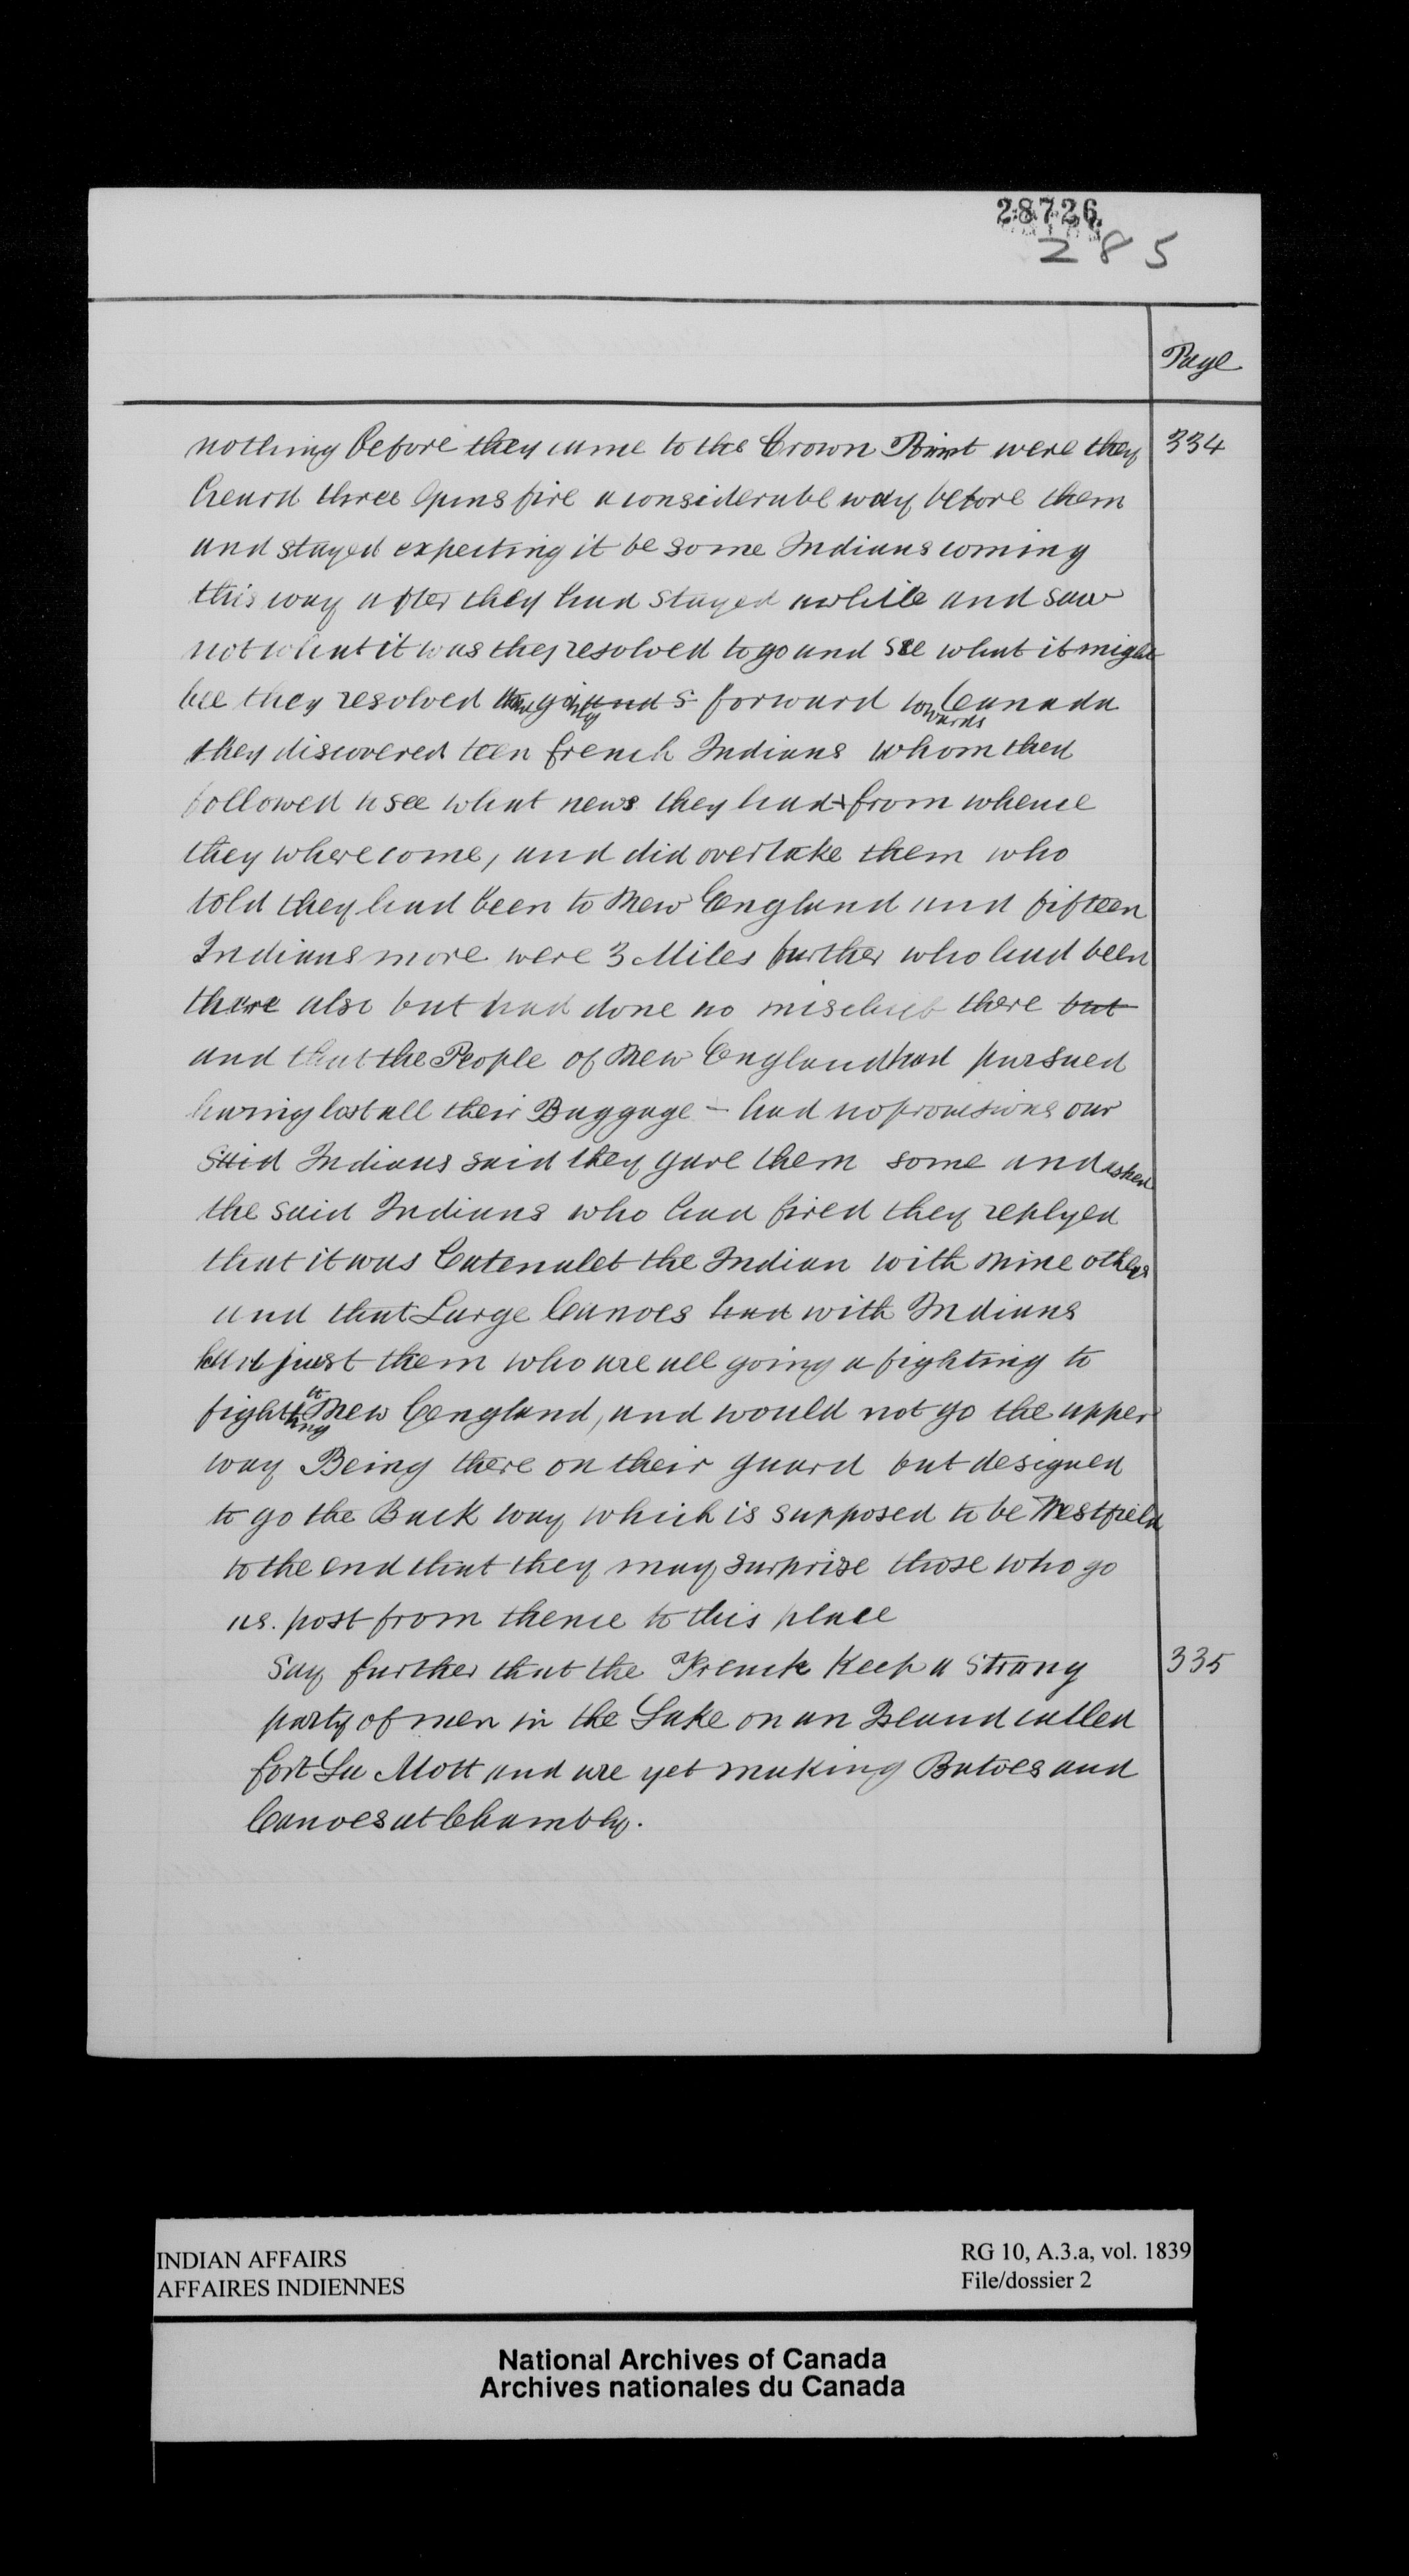 28726
285
Page
nothing before they came to the Crown Point were they 334
heard three Guns fire a considerable way before them
and stayed expecting it be some Indians coming
this way after they had stayed awhile and saw
not what it was they resolved to go and see what it might
bee they resolved going 5 forward towards Canada
they discovered teen french Indians whom thed
followed a see what news they had & from whence
they where come, and did overtake them who
told they had been to New England and fifteen
Indians more were 3 Miles further who had been
there also but had done no mischief there but
and that the People of New England had pursued
having lost all their Baggage - had no provisions our
said Indians said they gave them some and asked
the said Indians who had fired they replyed
that it was Catenalet the Indian with nine others
and that Large Canoes had with Indians
past them who are all going a fighting to
fighting to New England, and would not go the upper
way Being there on their guard but designed
to go the Back way which is supposed to be Westfield
to the end that they may surprise those who go
as. post from thence to this place
Say further that the French Keep a Strong 335
party of men in the Lake on an Island called
fort La Mott and are yet making Batoes and
Canoes at Chambly.
INDIAN AFFAIRS
AFFAIRES INDIENNES
RG 10, A.3.a, vol. 1839
File/dossier 2
National Archives of Canada
Archives nationales du Canada